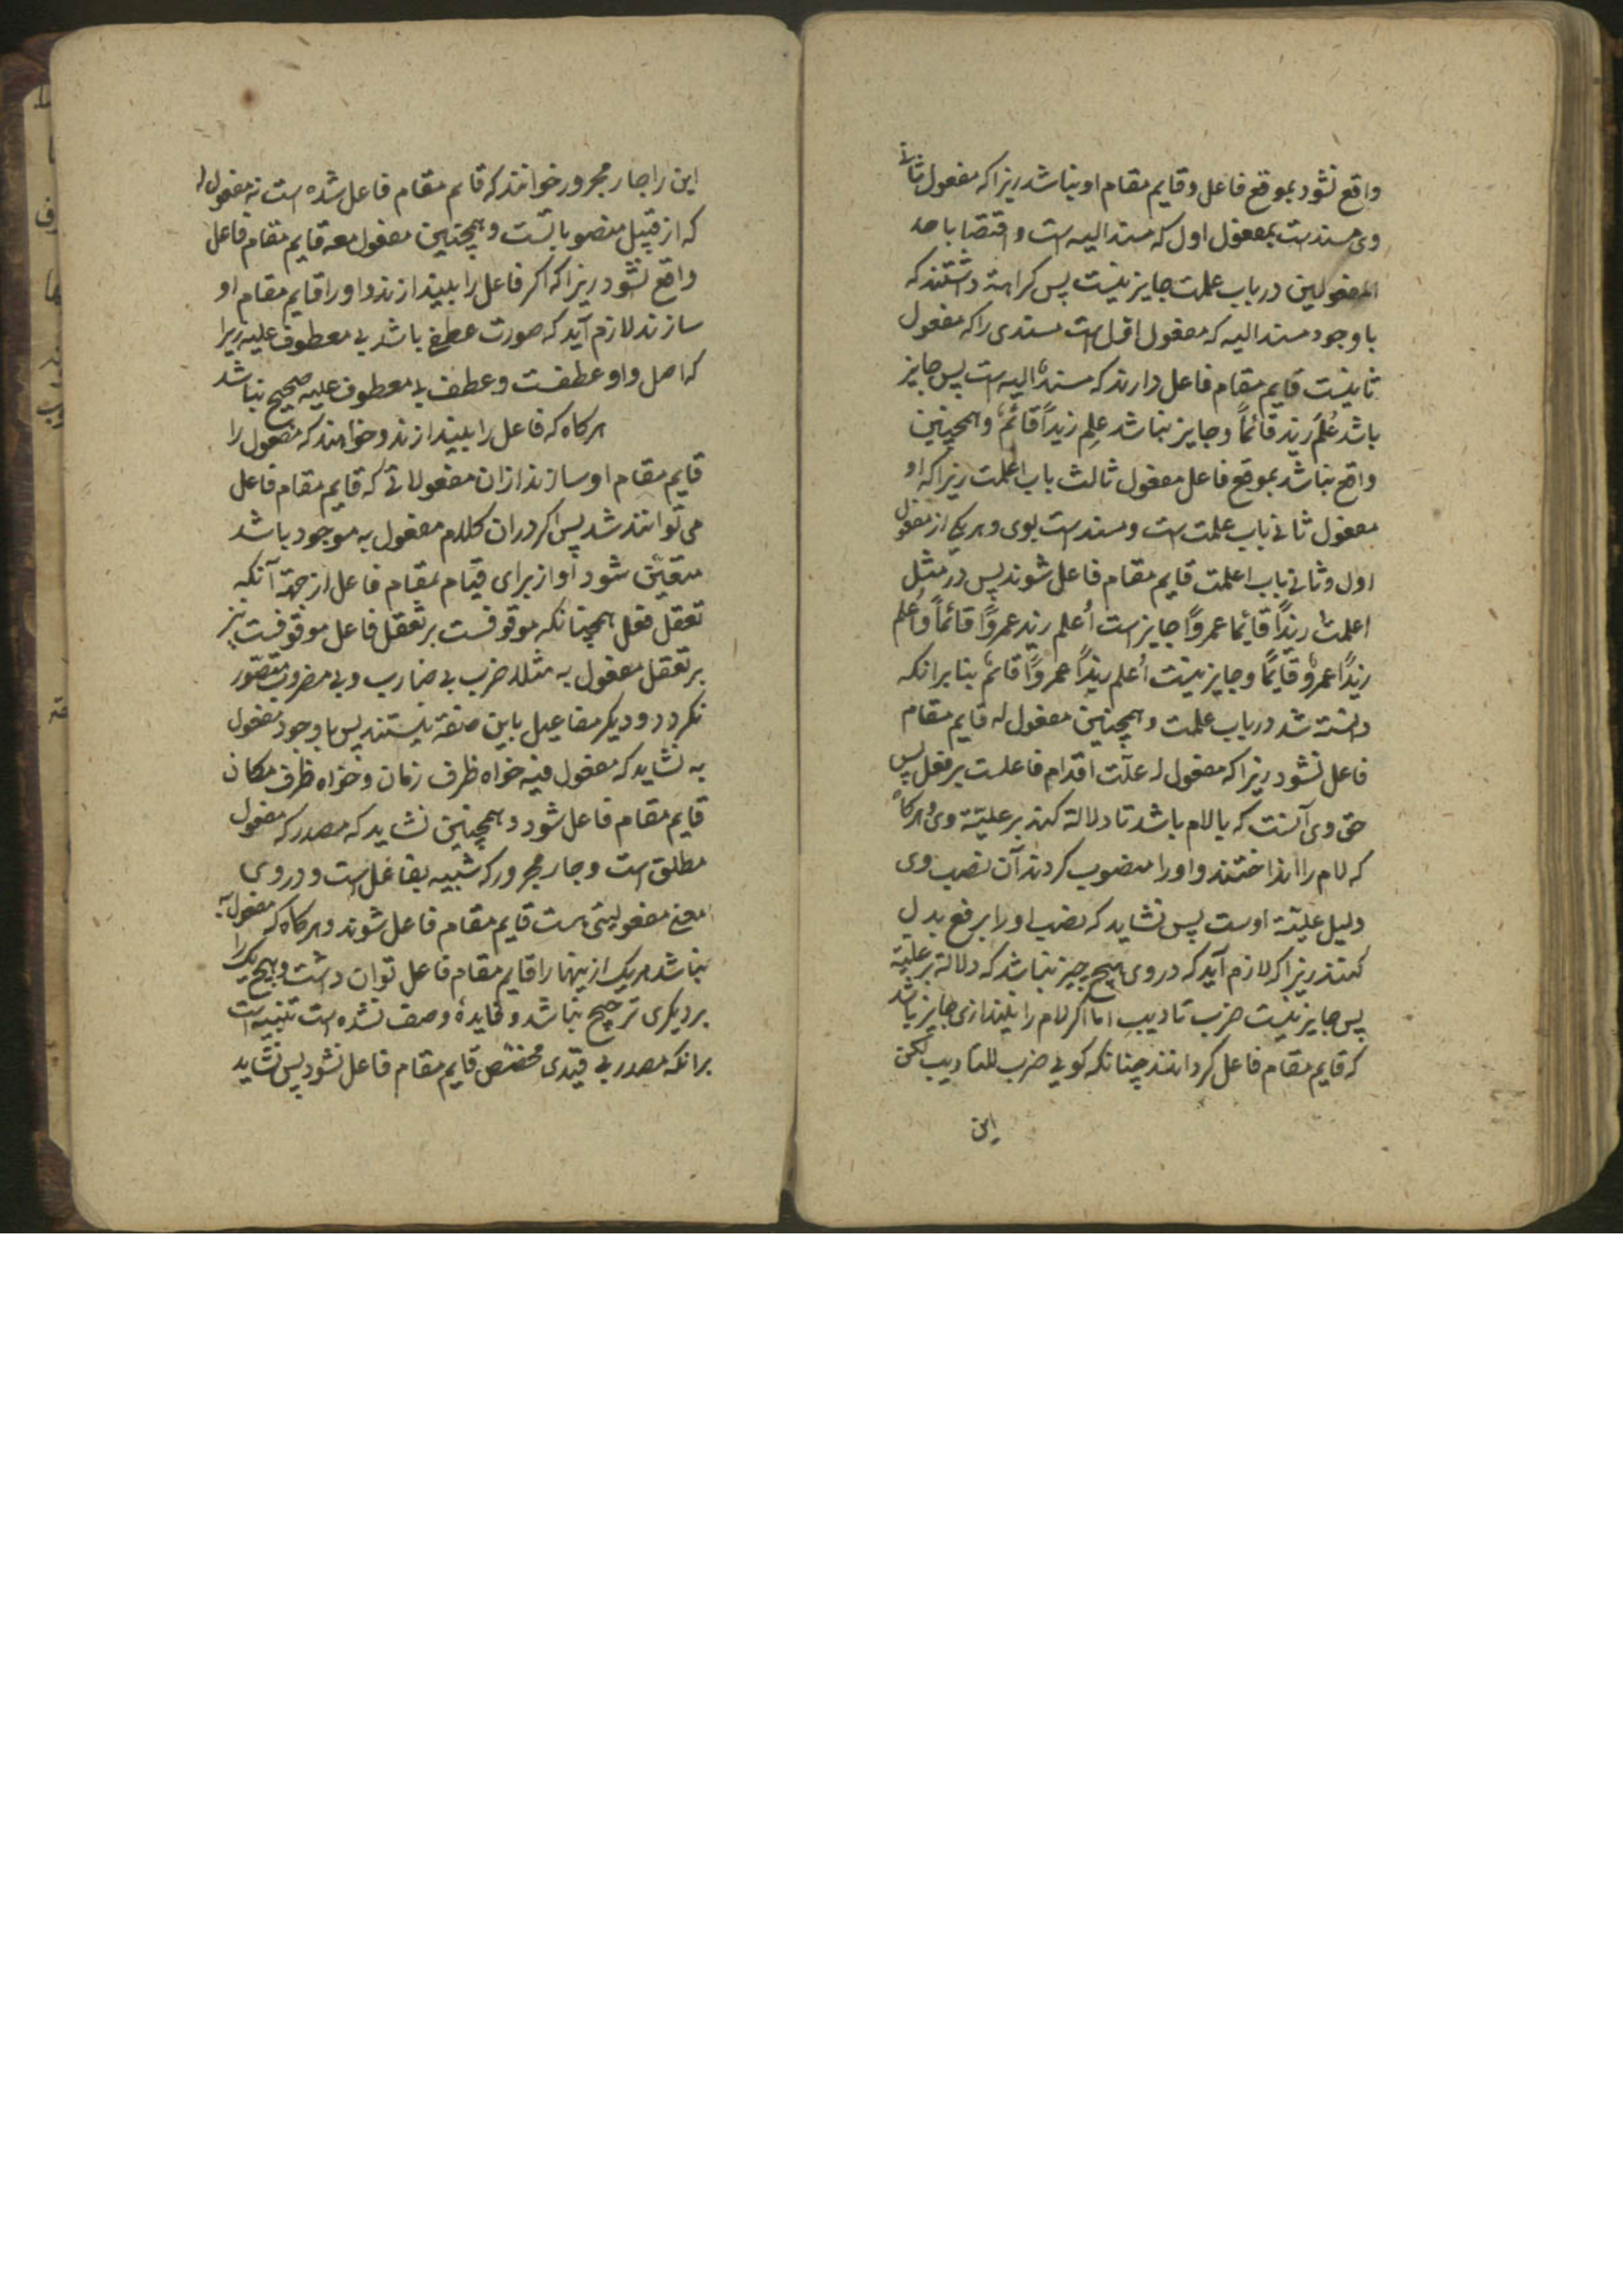 واقع نشود بموقع فاعل و قایم مقام او نباشد زیرا که مفعول ثانی
وی مسندست بمفعول اول که مسند الیه است و اقتصار باحد
المفعولین در باب علمت جایز نیست پس کراهته داشتند که
با وجود مسند الیه که مفعول اول است مسندی را که مفعول
ثانیست قایم مقام فاعل دارند که مسند الیه است پس جایز
باشد عُلِمَ زید قائماً و جایز نباشد عُلِم زیداً قائمٌ و همچنین
واقع نباشد بموقع فاعل مفعول ثالث باب اعلمت زیرا که او
مفعول ثانی باب علمت است و مسند است بوی و هر یکی از مفعول
اول و ثانی باب اعلمت قایم مقام فاعل شوند پس در مثل
اعلمت زیداً قایما عمرواً جایز است اُعلم زید عمرواً قائماً و اُعلم
زیداً عمروٌ قایمًا و جایز نیست اُعلم زیداً عمرواً قائمٌ بنا برانکه
دانسته شد در باب علمت و همچنین مفعول له قایم مقام
فاعل نشود زیرا که مفعول له علّت اقدام فاعلست بر فعل پس
حق وی آنست که با لام باشد تا دلالة کند بر علیّة وی و هرکاه
که لام را انداختند و او را منصوب کردند آن نصب وی
دلیل علیّة اوست پس نشاید که نصب او را برفع بدل
کنند زیرا که لازم آید که در وی هیچ چیز نباشد که دلالة بر علیّة
پس جایز نیست ضرب تادیب اما اکر لام را نیندازی جایز باشد
که قایم مقام فاعل کردانند چنانکه کویی ضرب للتادیب لکن
این
این را جار مجرور خوانند که قایم مقام فاعل شده است نه مفعول له
که از قبیل منصوباتست و همچنین مفعول معه قایم مقام فاعل
واقع نشود زیرا که اکر فاعل را بیندازند و او را قایم مقام او
سازند لازم آید که صورت عطف باشد بی معطوف علیه زیرا
که اصل واو عطفست و عطف بی معطوف علیه صحیح نباشد
هرکاه که فاعل را بیندازند و خواهند که مفعول را
قایم مقام او سازند ازان مفعولاتی که قایم مقام فاعل
می توانند شد پس اکر دران کلام مفعول به موجود باشد
متعیّن شود او از برای قیام بمقام فاعل از جهة آنکه
تعقل فعل همچنانکه موقوفست بر تعقل فاعل موقوفست نیز
بر تعقل مفعول به مثلا ضرب بی ضارب و بی مضروب متصوّر
نکردد و دیکر مفاعیل باین صفة نیستند پس با وجود مفعول
به نشاید که مفعول فیه خواه ظرف زمان و خواه ظرف مکان
قایم مقام فاعل شود و همچنین نشاید که مصدر که مفعول
مطلق است و جار مجرور که شبیه بفاعل است و در وی
معنی مفعولیتی هست قایم مقام فاعل شوند و هرکاه که مفعول به
نباشد هریک از ینها را قایم مقام فاعل توان داشت و هیچ یک را
بر دیکری ترجیح نباشد و فایدهٔ وصف نشده است تنبیه است
برانکه مصدر بی قیدی مخصّص قایم مقام فاعل نشود پس نشاید